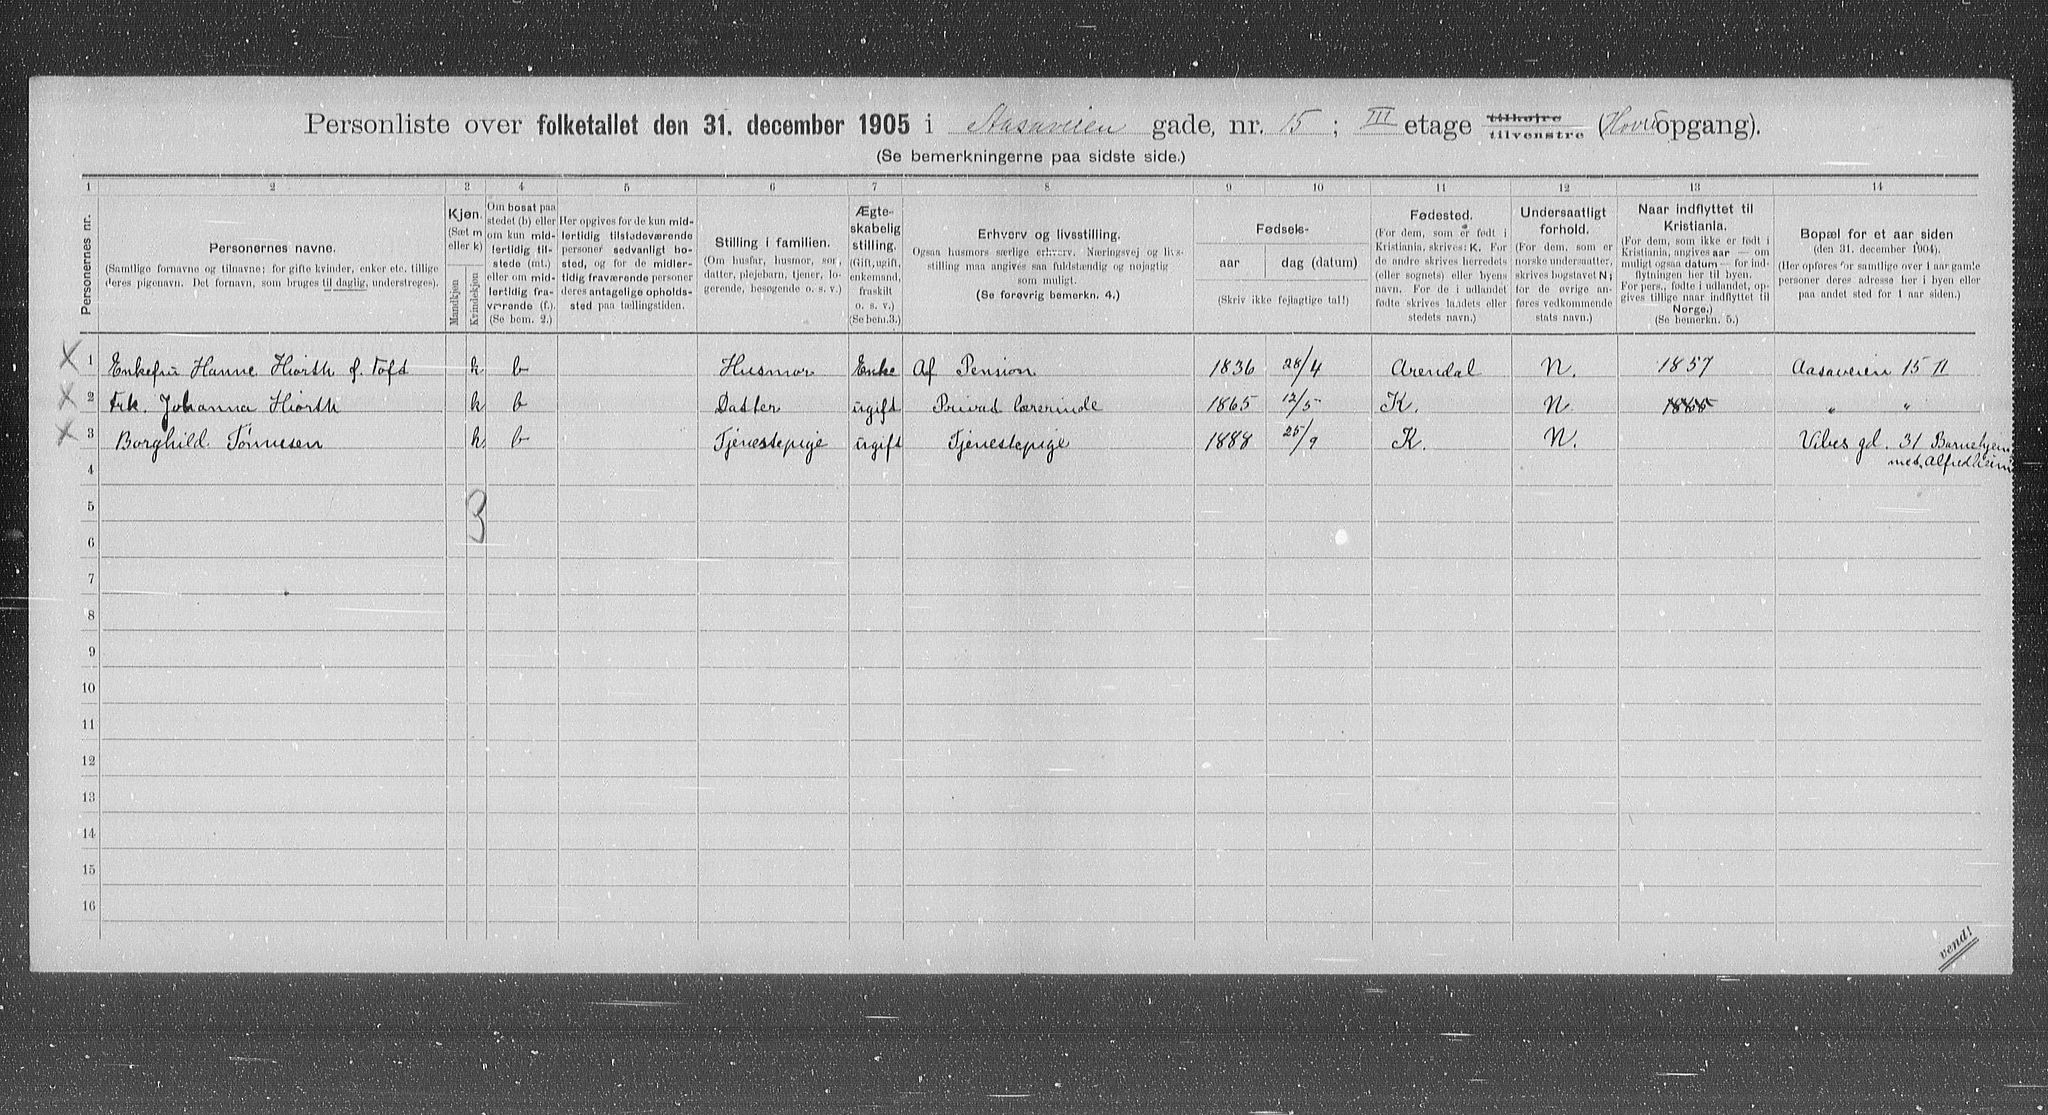 Personliste over folketallet den 31. december 1905 i Aasaveien gade, nr. 15; III etage tilhøjre tilvenstre (Hoved opgang).
(Se bemerkningerne paa sidste side.)
1 2 3 4 5 6 7 8 9 10 11 12 13 14
Personernes nr.
Personernes navne.
(Samtlige fornavne og tilnavne; for gifte kvinder, enker etc. tillige
deres pigenavn. Det fornavn, som bruges til daglig, understreges).
Kjøn.
(Sæt m
eller k)
Mandkjøn
Kvindekjøn
Om bosat paa
stedet (b) eller
om kun mid-
lertidig til-
stede (mt.)
eller om mid-
lertidig fra-
værende (f.)
(Se bem. 2.)
Her opgives for de kun mid-
lertidig tilstedeværende
personer sedvanligt bo-
sted, og for de midler-
tidig fraværende personer
deres antagelige opholds-
sted paa tællingstiden.
Stilling i familien.
(Om husfar, husmor, søn,
datter, plejebarn, tjener, lo-
gerende, besøgende o. s. v.)
Ægte-
skabelig
stilling.
(Gift, ugift,
enkemand,
fraskilt
o. s. v.)
(Se bem. 3.)
Erhverv og livsstilling.
Ogsaa husmors særlige erhverv. Næringsvej og livs-
stilling maa angives saa fuldstændig og nøjagtig
som muligt.
(Se forøvrig bemerkn. 4.)
Fødsels-
aar dag (datum)
(Skriv ikke fejlagtige tal!)
Fødested.
(For dem, som er født i
Kristiania, skrives: K. For
de andre skrives herredets
(eller sognets) eller byens
navn. For de i udlandet
fødte skrives landets eller
stedets navn.)
Undersaatligt
forhold.
(For dem, som er
norske undersaatter,
skrives bogstavet N;
for de øvrige an-
føres vedkommende
stats navn.)
Naar indflyttet til
Kristiania.
(For dem, som ikke er født i
Kristiania, angives aar — om
muligt ogsaa datum — for ind-
flytningen her til byen.
For pers., fødte i udlandet, op-
gives tillige naar indflyttet til
Norge.)
(Se bemerkn. 5.)
Bopæl for et aar siden
(den 31. december 1904).
(Her opføres for samtlige over 1 aar gamle
personer deres adresse her i byen eller
paa andet sted for 1 aar siden.)
1 Enkefru Hanne Hiorth f. Toft k b Husmor Enke Af Pension 1836 28/4 Arendal N. 1857 Aasaveien 15 II
2 Frk. Johanna Hiorth k b Datter ugift Privat lærerinde 1865 12/5 K. N. 1865 " "
3 Borghild Tønnesen k b Tjenestepige ugift Tjenestepige 1888 25/9 K. N. Vibes gd. 31 Barnehjem
4 Alfredheim
5
3
6
7
8
9
10
11
12
13
14
15
16
vend!